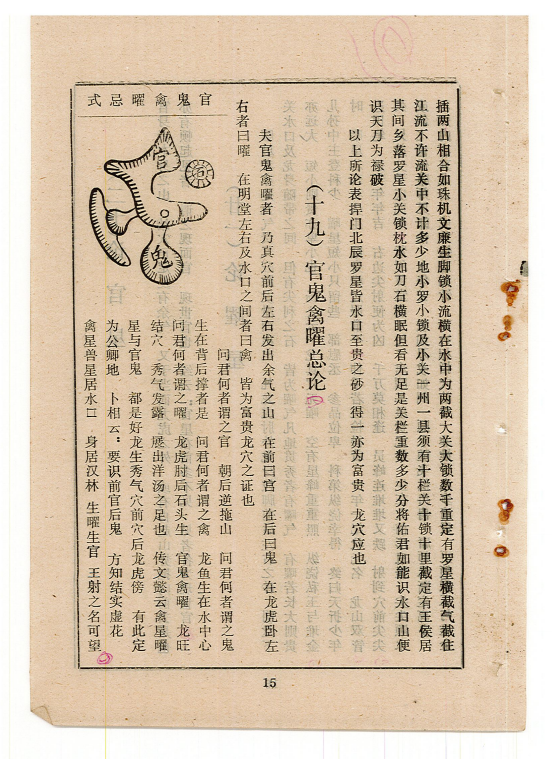 插两山相合如珠机文廉生脚锁小流横在水中为两截大关大锁数千重定有罗星横截气截住
江流不许流关中不计多少地小罗小锁及小关一州一县须有十栏关十锁十里截定有王侯居
其间乡落罗星小关锁枕水如刀石横眠但看无足是关栏重数多少分将佑君如能识水口山便
识天刀为禄破
以上所论表捍门北辰罗星皆水口至贵之砂若得一亦为富贵 龙穴应也
(十九)官鬼禽曜总论
夫官鬼禽曜者 乃真穴前后左右发出余气之山 在前曰官 在后曰鬼 在龙虎卧左
右者曰曜 在明堂左右及水口之间者曰禽 皆为富贵龙穴之证也
问君何者谓之官 朝后逆拖山 问君何者谓之鬼
生在背后撑者是 问君何者谓之禽 龙鱼生在水中心
问君何者谓之曜 龙虎肘后石头生 官鬼禽曜 龙旺
结穴 秀气发露 展出洋汤之足也 传文懿云禽星曜
星与官鬼 都是好龙生秀气穴前穴后龙虎傍 有此定
为公卿地 卜相云:要识前官后鬼 方知结实虚花
禽星兽星居水口 身居汉林 生曜生官 王射之名可望
官鬼禽曜忌式
官
禽
曜
鬼
15